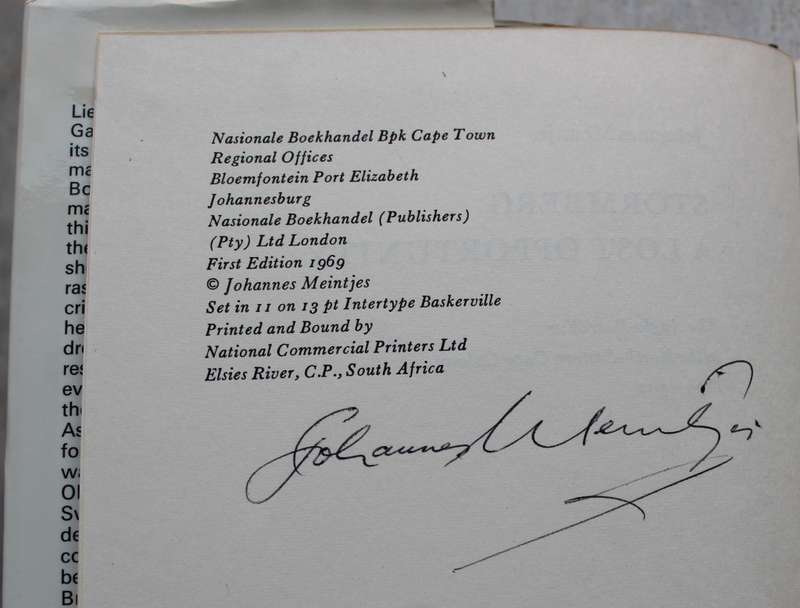 Nasionale Boekhandel Bpk Cape Town
Regional Offices
Bloemfontein Port Elizabeth
Johannesburg
Nasionale Boekhandel (Publishers)
(Pty) Ltd London
First Edition 1969
© Johannes Meintjes
Set in 11 on 13 pt Intertype Baskerville
Printed and Bound by
National Commercial Printers Ltd
Elsies River, C.P., South Africa
Johannes Meintjes